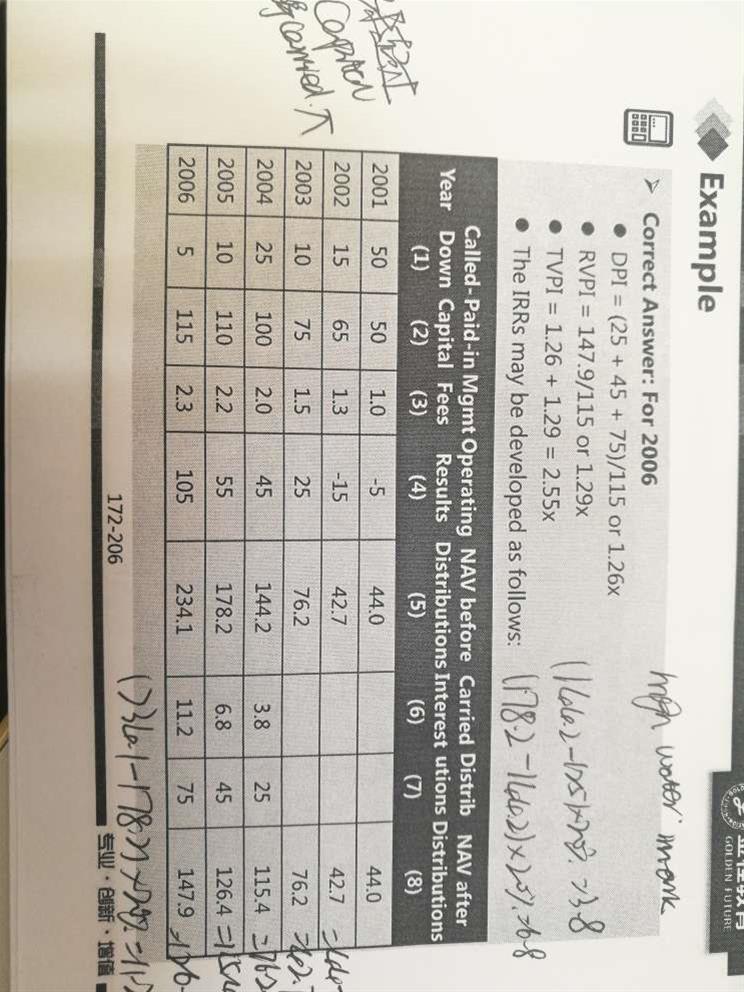 GOLDEN FUTURE
Example
high water mark
Correct Answer: For 2006
DPI = (25 + 45 + 75)/115 or 1.26x
RVPI = 147.9/115 or 1.29x
TVPI = 1.26 + 1.29 = 2.55x
The IRRs may be developed as follows:
(178.2-144.2)×20%=6.8
Year Called-Down (1) Paid-in Capital (2) Mgmt Fees (3) Operating Results (4) NAV before Distributions (5) Carried Interest (6) Distributions (7) NAV after Distributions (8)
2001 50 50 1.0 -5 44.0 44.0
2002 15 65 1.3 -15 42.7 42.7
2003 10 75 1.5 25 76.2 76.2
2004 25 100 2.0 45 144.2 3.8 25 115.4
2005 10 110 2.2 55 178.2 6.8 45 126.4
2006 5 115 2.3 105 234.1 11.2 75 147.9
172-206
专业·创新·增值